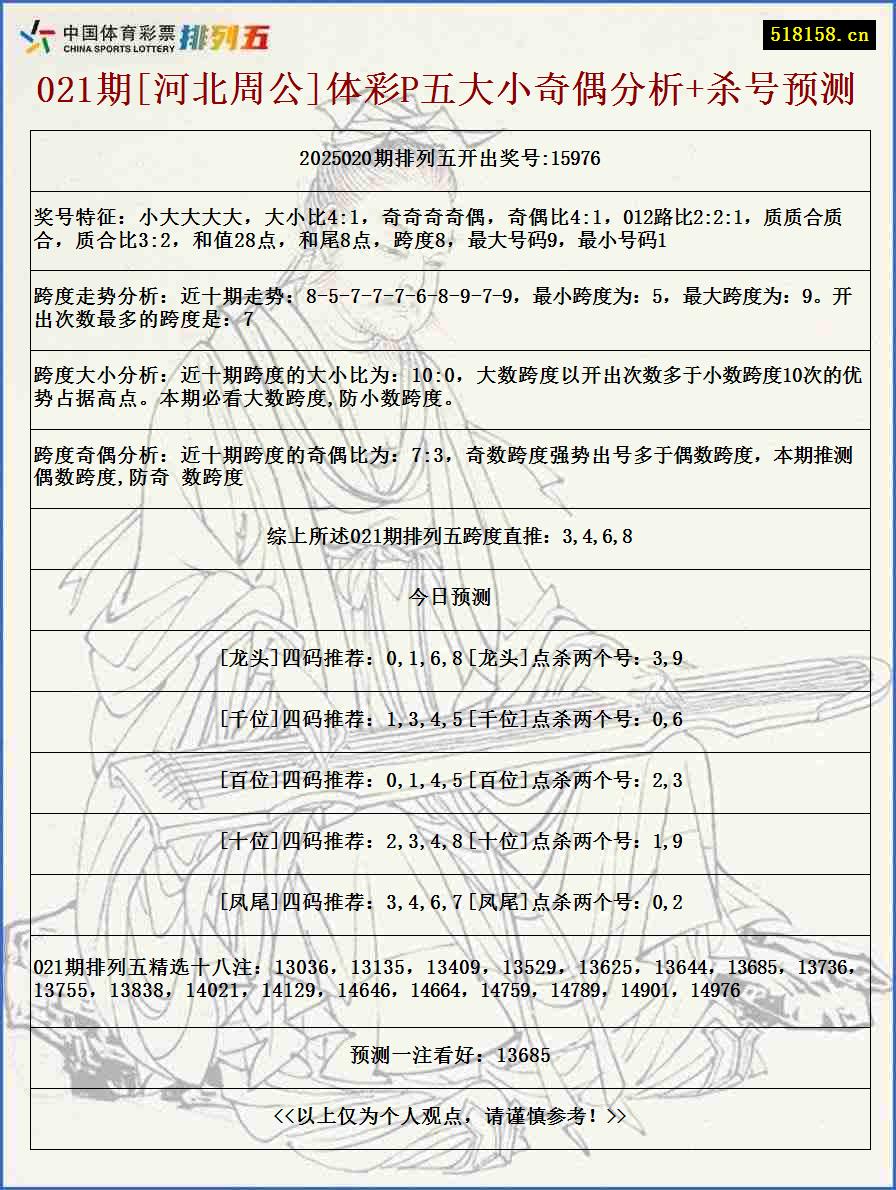 中国体育彩票
CHINA SPORTS LOTTERY
排列五
518158.cn
021期[河北周公]体彩P五大小奇偶分析+杀号预测
2025020期排列五开出奖号:15976
奖号特征：小大大大大，大小比4:1，奇奇奇奇偶，奇偶比4:1，012路比2:2:1，质质合质
合，质合比3:2，和值28点，和尾8点，跨度8，最大号码9，最小号码1
跨度走势分析：近十期走势：8-5-7-7-7-6-8-9-7-9，最小跨度为：5，最大跨度为：9。开
出次数最多的跨度是：7
跨度大小分析：近十期跨度的大小比为：10:0，大数跨度以开出次数多于小数跨度10次的优
势占据高点。本期必看大数跨度,防小数跨度。
跨度奇偶分析：近十期跨度的奇偶比为：7:3，奇数跨度强势出号多于偶数跨度，本期推测
偶数跨度,防奇 数跨度
综上所述021期排列五跨度直推：3,4,6,8
今日预测
[龙头]四码推荐：0,1,6,8[龙头]点杀两个号：3,9
[千位]四码推荐：1,3,4,5[千位]点杀两个号：0,6
[百位]四码推荐：0,1,4,5[百位]点杀两个号：2,3
[十位]四码推荐：2,3,4,8[十位]点杀两个号：1,9
[凤尾]四码推荐：3,4,6,7[凤尾]点杀两个号：0,2
021期排列五精选十八注：13036，13135，13409，13529，13625，13644，13685，13736，
13755，13838，14021，14129，14646，14664，14759，14789，14901，14976
预测一注看好：13685
<<以上仅为个人观点，请谨慎参考！>>